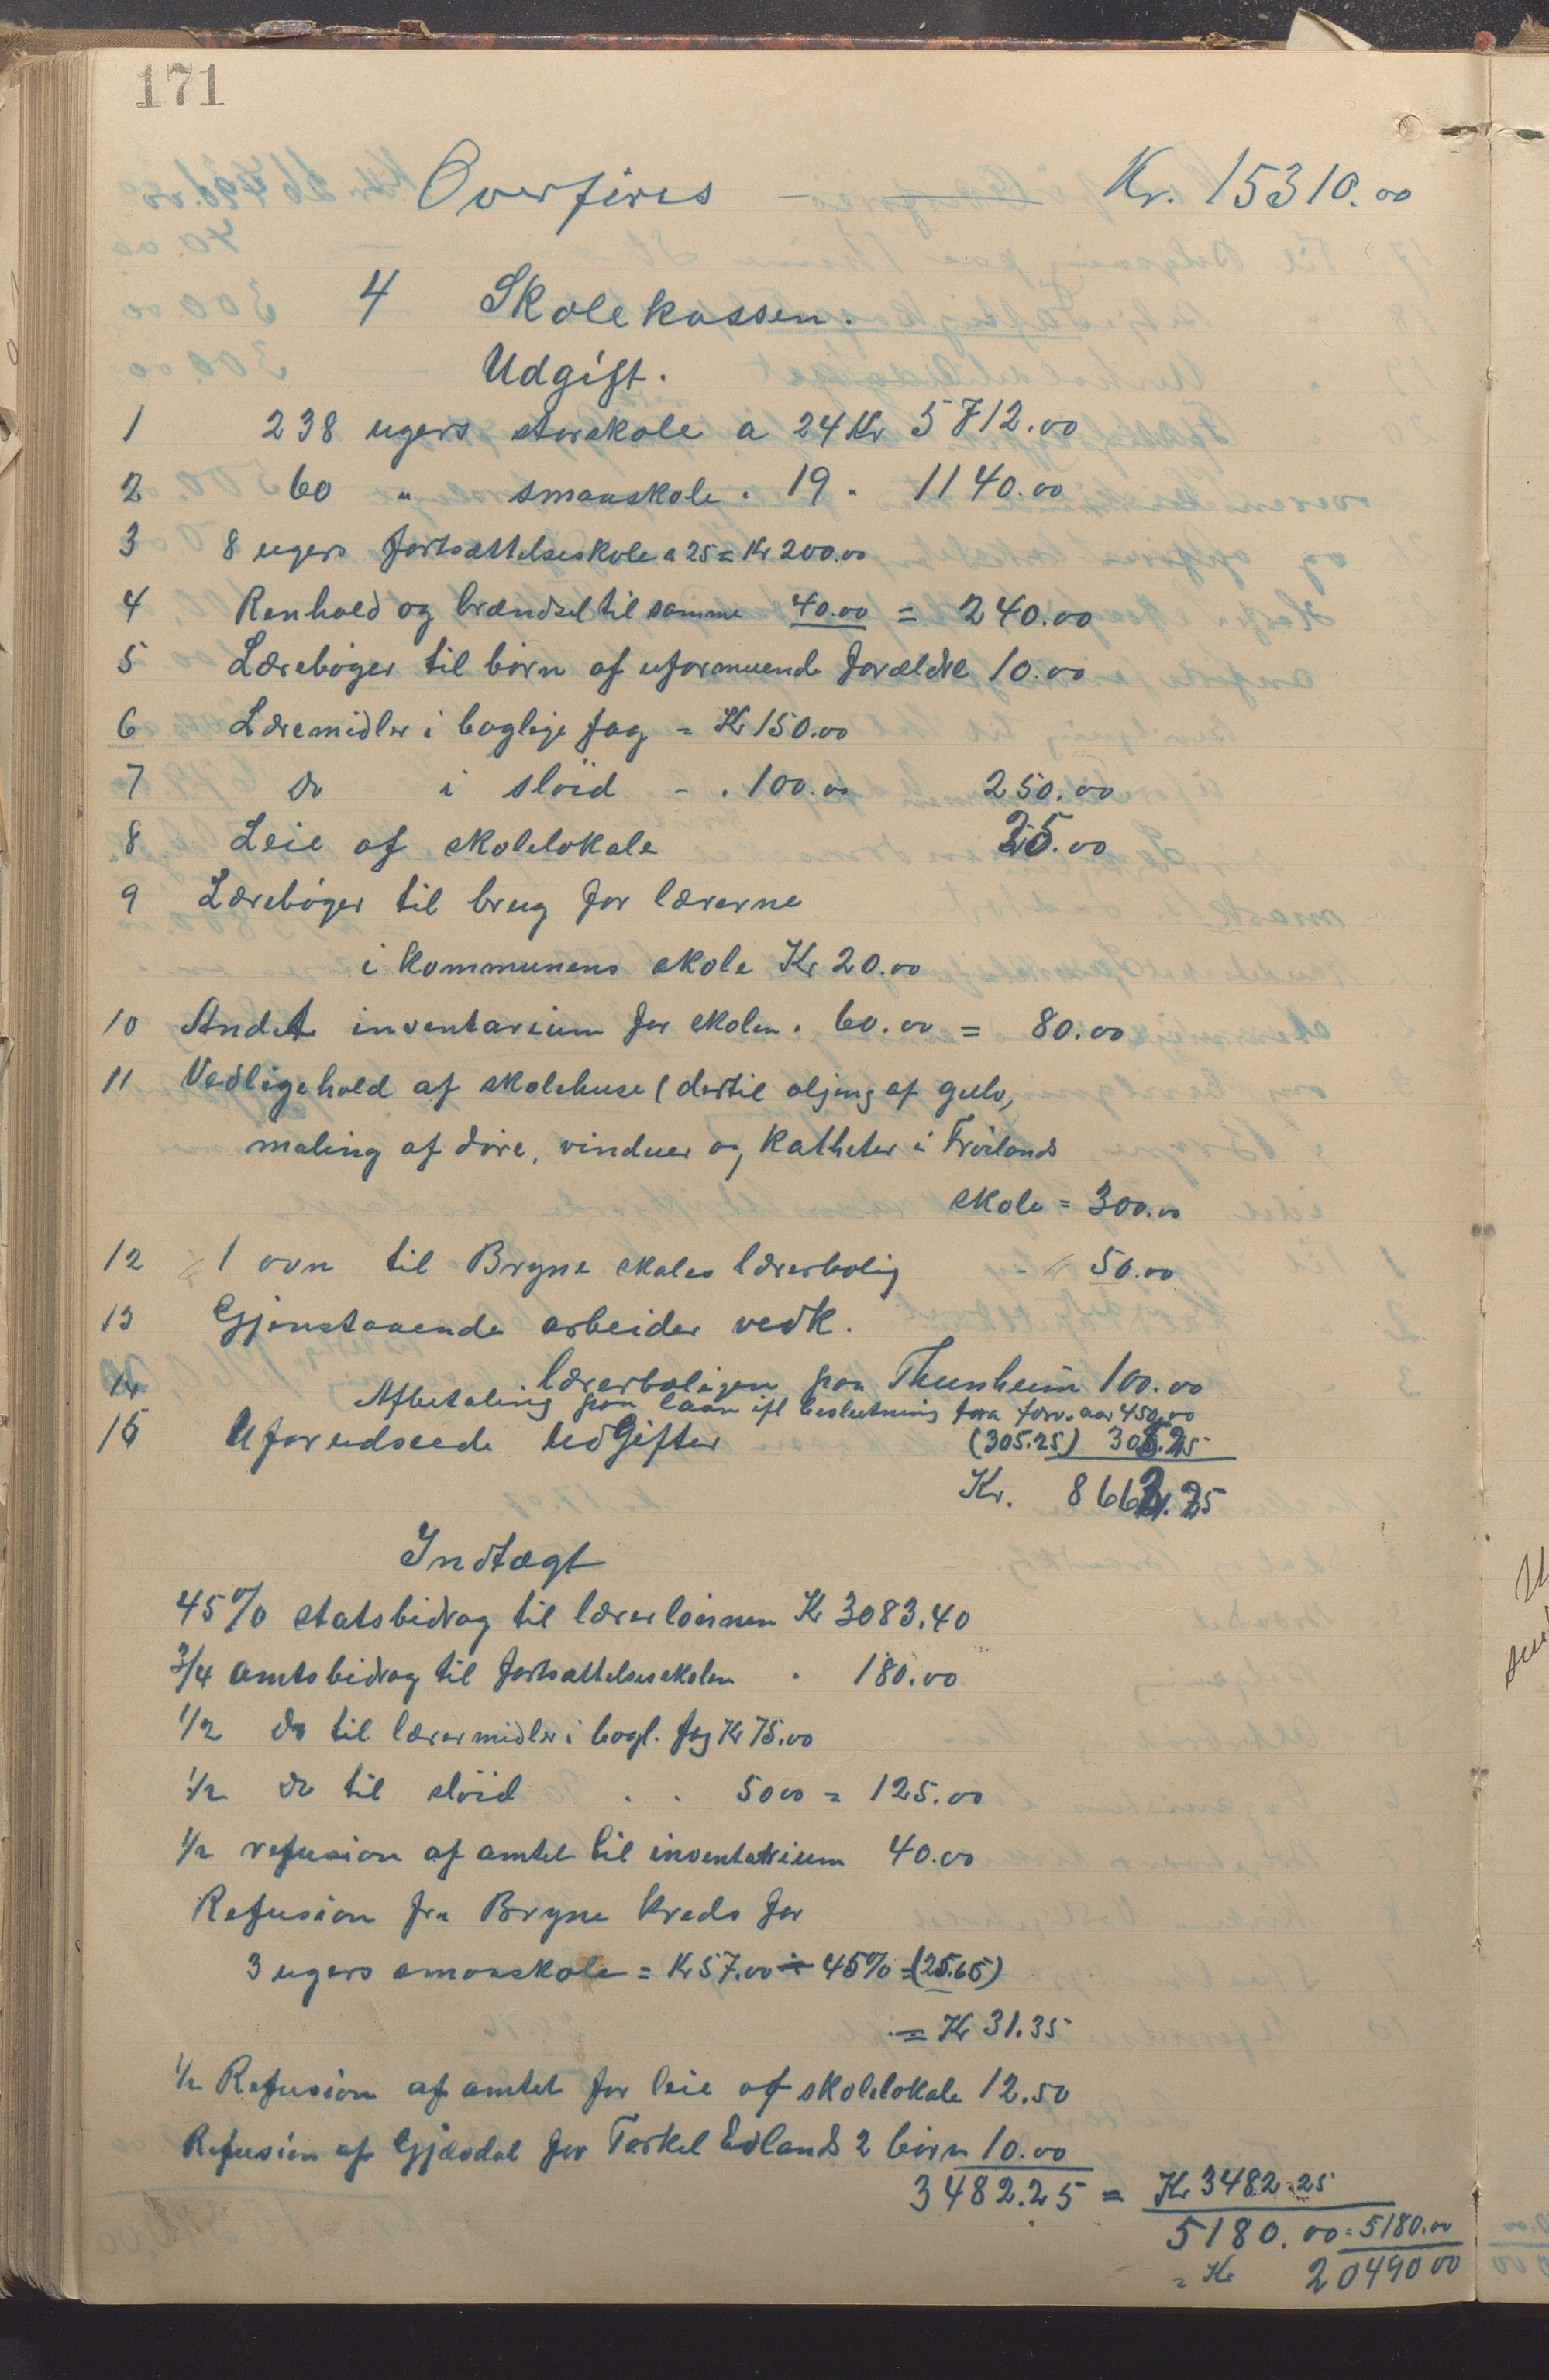 171
Overføres Kr. 15310.00
4 Skolekassen.
Udgift.
1 238 ugers storskole a 24 Kr 5712.00
2 60 " smaaskole . 19 " 1140.00
3 8 ugers fortsættelseskole a 25 = Kr 200.00
4 Renhold og brændsel til samme 40.00 = 240.00
5 Lærebøger til børn af uformuende forældre 10.00
6 Læremidler i boglige fag = Kr 150.00
7 do i sløid - . 100.00 250.00
8 Leie af skolelokale 25.00
9 Lærebøger til brug for lærerne
i kommunens skole Kr 20.00
10 Andet inventarium for skolen . 60.00 = 80.00
11 Vedligehold af skolehuse (dertil oljing af gulv,
maling af døre, vinduer og Katheter i Frøilands
skole = 300.00
12 1 ovn til Bryne skoles lærerbolig - 50.00
13 Gjenstaaende arbeider vedk.
lærerboligen paa Thunheim 100.00
14 Afbetaling paa laan ifl beslutning fra forr. aar 450.00
15 Uforudseede Udgifter (305.25) 305.25
Kr. 8662.25
Indtægt
45% statsbidrag til lærerlønnen Kr 3083.40
3/4 amtsbidrag til fortsættelsesskolen . 180.00
1/2 do til lærermidler i bogl. fag Kr 75.00
1/2 do til sløid . . 50 00 = 125.00
1/2 refusion af amtet til inventarium 40.00
Refusion fra Bryne kreds for
3 ugers smaaskole = Kr 57.00 ÷ 45% = (25.65)
= Kr 31.35
1/2 Refusion af amtet for leie af skolelokale 12.50
Refusion af Gjæsdal for Torkel Edlands 2 børn 10.00
3482.25 = Kr 3482.25
5180.00 = 5180.00
= Kr 20490 00